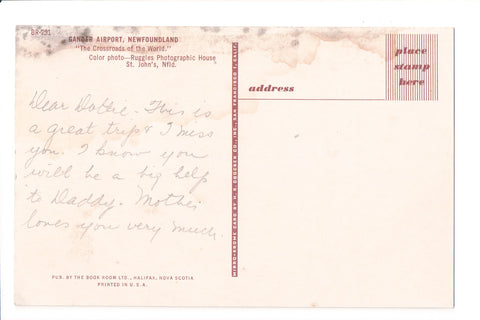 BR-291
GANDER AIRPORT, NEWFOUNDLAND
"The Crossroads of the World."
Color photo—Ruggles Photographic House
St. John's, Nfld.
place
stamp
here
address
Dear Dottie - This is
a great trip & I miss
you. I know you
will be a big help
to Daddy. Mother
loves you very much.
MIRRO-KROME CARD BY H. S. CROCKER CO., INC., SAN FRANCISCO 1, CALIF.
PUB. BY THE BOOK ROOM LTD., HALIFAX, NOVA SCOTIA
PRINTED IN U.S.A.